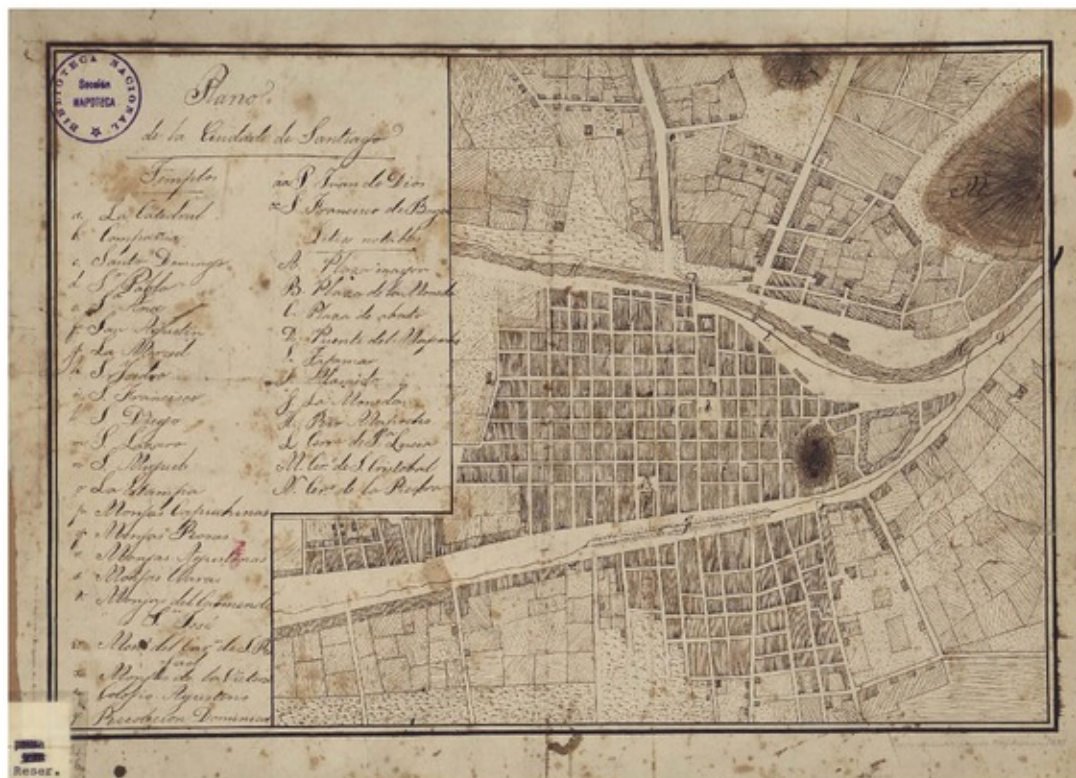 BIBLIOTECA NACIONAL
Sección
MAPOTECA
Plano
de la Ciudad de Santiago
Templos
a. La Catedral
b. Compañia
c. Santo Domingo
d. S. Pablo
e. Sta Ana
f. San Agustin
g. La Merced
h. S. Isidro
i. S. Francisco
l. S. Diego
m. S. Lázaro
n. S. Miguel
o. La Estampa
p. Monjas Capuchinas
q. Monjas Rosas
r. Monjas Agustinas
s. Monjas Claras
Monjas del Carmen de
S. José
Monjas de la Victoria
Colegio Agustino
Recolecion Dominica
aa S. Juan de Dios
S. Francisco de Borja
Sitios notables
A. Plaza mayor
B. Plaza de la Moneda
C. Plaza de abasto
D. Puente del Mapocho
Tajamar
La Moneda
Rio Mapocho
L. Cerro de Sta Lucia
M. Co. de S. Cristobal
N. Co. de la
M
Reser.